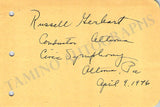 Russell Gerhart
Conductor Altoona
Civic Symphony
Altoona, Pa
April 9, 1946
TAMINO AUTOGRAPHS